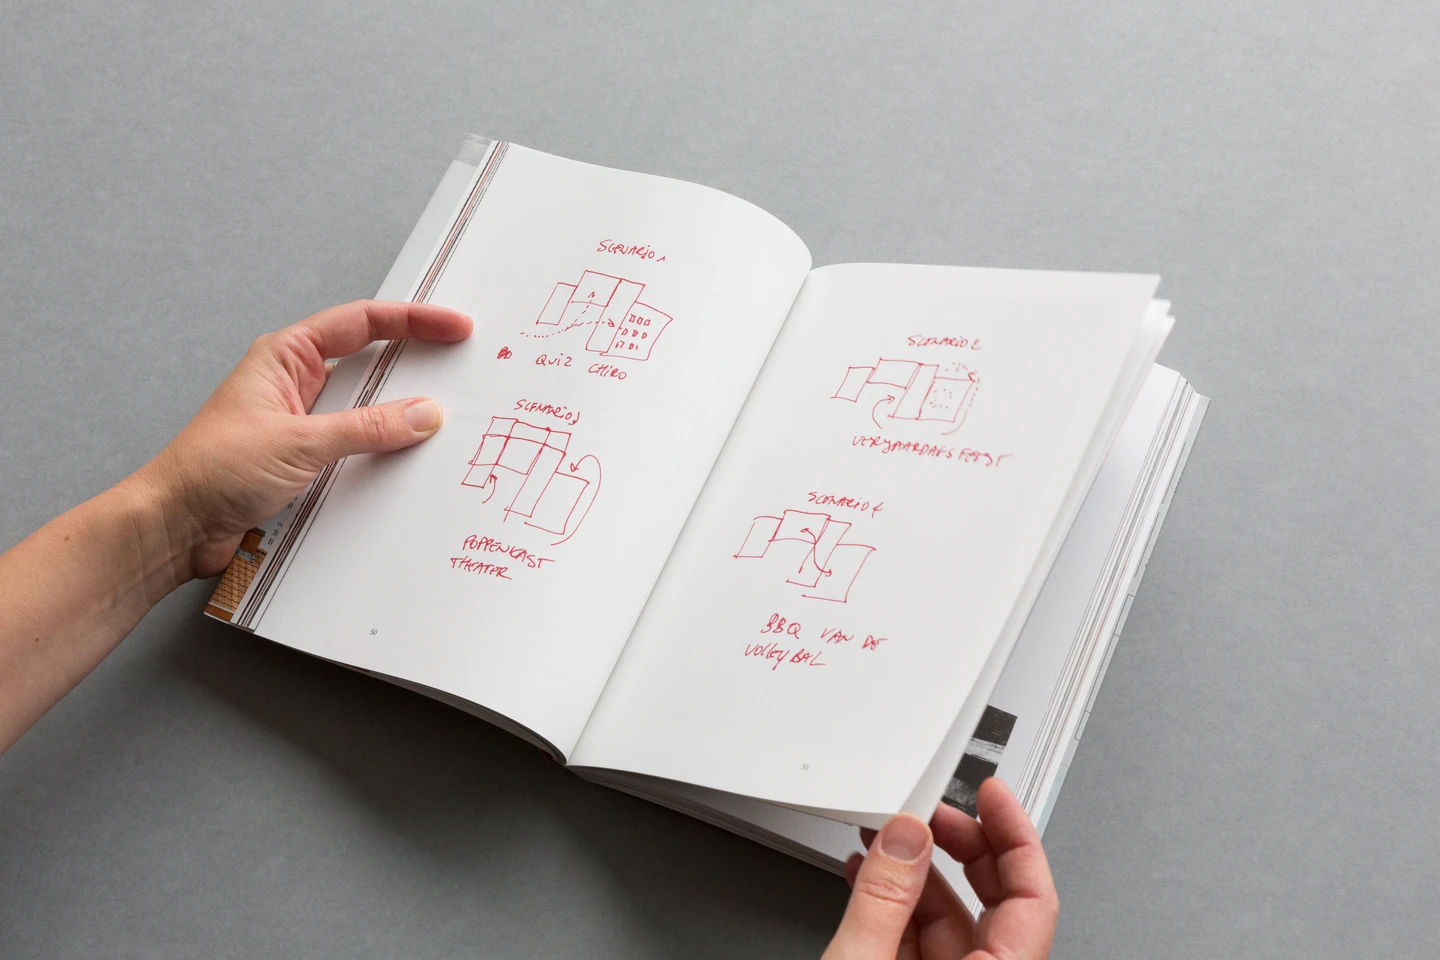 SCENARIO 1
QUIZ CHIRO
SCENARIO 3
POPPENKAST
THEATER
50
SCENARIO 2
VERJAARDAGSFEEST
SCENARIO 4
BBQ VAN DE
VOLLEYBAL
51